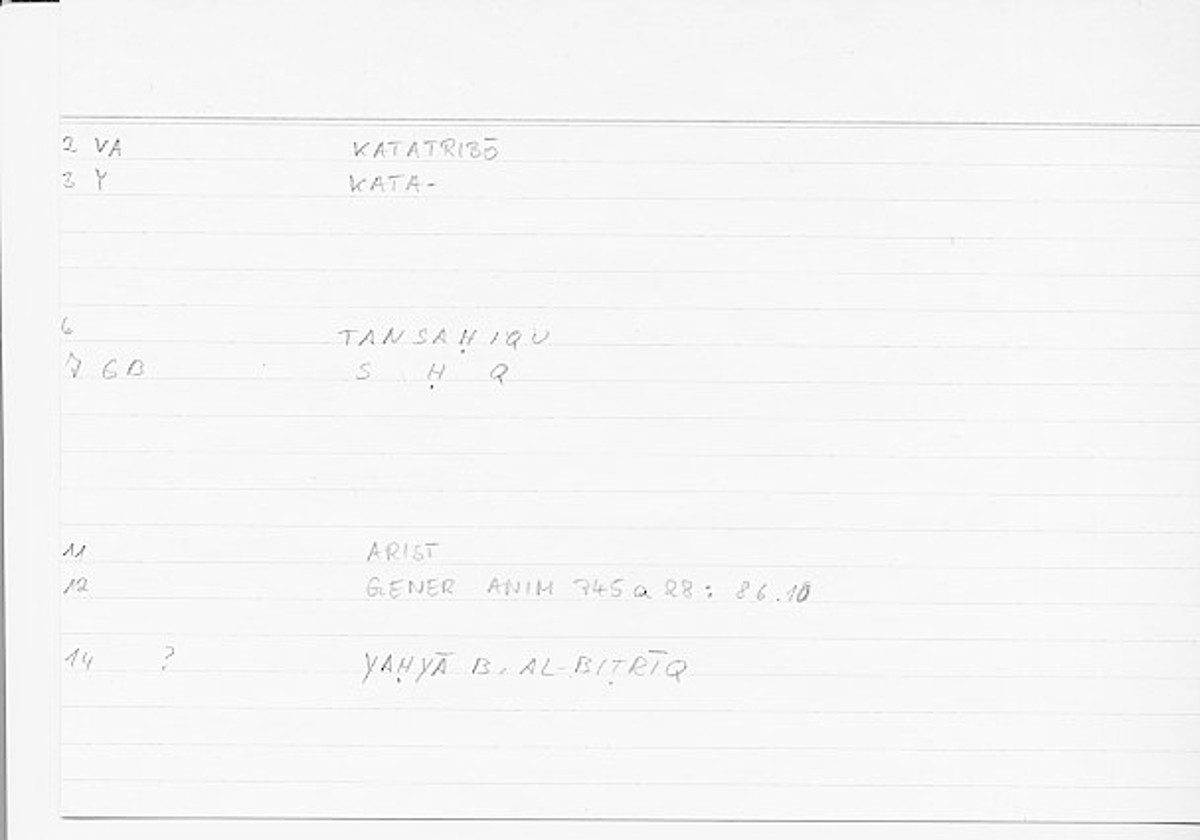 2 VA KATATRIBŌ
3 Y KATA-
6 TANSAḤIQU
7 GB S Ḥ Q
11 ARIST
12 GENER ANIM 745a28: 86.10
14 ? YAḤYĀ B. AL-BIṬRĪQ